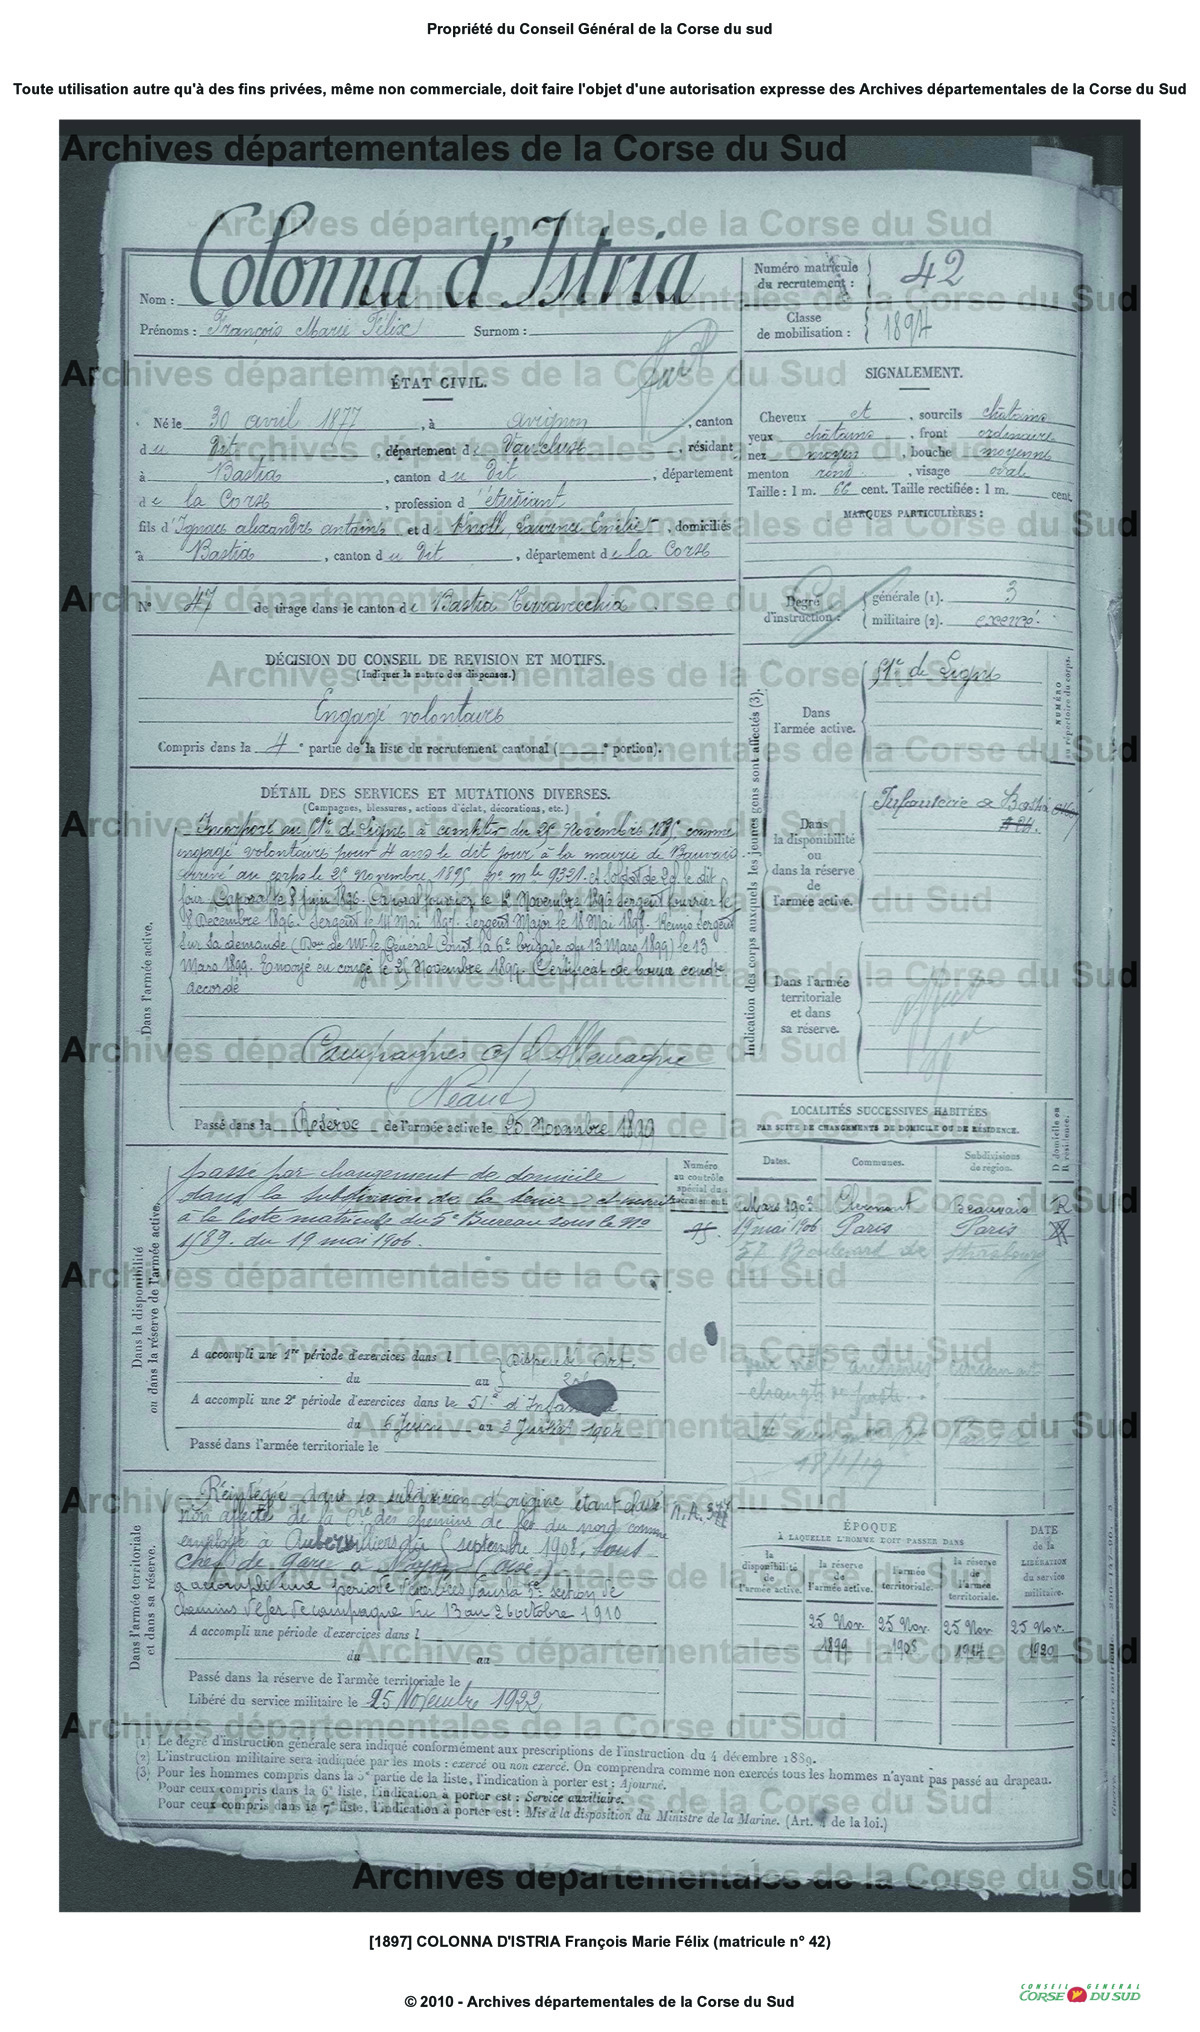 Propriété du Conseil Général de la Corse du sud
Toute utilisation autre qu'à des fins privées, même non commerciale, doit faire l'objet d'une autorisation expresse des Archives départementales de la Corse du Sud
Archives départementales de la Corse du Sud
Nom : Colonna d'Istria
Prénoms : François Marie Félix Surnom :
Numéro matricule du recrutement : 42
Classe de mobilisation : 1894
ÉTAT CIVIL.
Né le 30 avril 1877, à Avignon, canton
du dit, département de Vaucluse, résidant
à Bastia, canton du dit, département
de la Corse, profession d'étudiant
fils d'Ignace alexandre antoine et de Knoll, Laurence Emélie, domiciliés
à Bastia, canton du dit, département de la Corse
N° 47 de tirage dans le canton de Bastia Terravecchia
SIGNALEMENT.
Cheveux et, sourcils châtains
yeux châtains, front ordinaire
nez moyen, bouche moyenne
menton rond, visage oval
Taille : 1 m. 66 cent. Taille rectifiée : 1 m. cent.
MARQUES PARTICULIÈRES :
Degré d'instruction :
générale (1). 3
militaire (2). exercé
DÉCISION DU CONSEIL DE REVISION ET MOTIFS.
(Indiquer la nature des dispenses.)
Engagé volontaire
Compris dans la 4e partie de la liste du recrutement cantonal ( e portion).
DÉTAIL DES SERVICES ET MUTATIONS DIVERSES.
(Campagnes, blessures, actions d'éclat, décorations, etc.)
Dans l'armée active.
Incorporé au 51e de Ligne à compter du 25 Novembre 1895 comme
engagé volontaire pour 4 ans le dit jour à la mairie de Beauvais
arrivé au corps le 25 novembre 1895 no mle 9321 et soldat de 2e cl. le dit
jour Caporal le 8 juin 1896. Caporal fourrier le 12 Novembre 1896 Sergent fourrier le
8 Decembre 1896. Sergent le 14 Mai 1897. Sergent Major le 18 Mai 1898. Remis Sergent
sur sa demande (Don de Mr le Général Comt la 6e brigade du 13 Mars 1899) le 13
Mars 1899. Envoyé en congé le 25 Novembre 1899. Certificat de bonne conduite
accordé
Campagnes c/ l'Allemagne
(Néant)
Passé dans la Réserve de l'armée active le 25 Novembre 1899
Indication des corps auxquels les jeunes gens sont affectés (3).
NUMÉRO au répertoire du corps.
Dans l'armée active.
51e de Ligne
Dans la disponibilité ou dans la réserve de l'armée active.
Infanterie à Bastia
Dans l'armée territoriale et dans sa réserve.
LOCALITÉS SUCCESSIVES HABITÉES
PAR SUITE DE CHANGEMENTS DE DOMICILE OU DE RÉSIDENCE.
Dates. Communes. Subdivisions de région. D domicile ou R résidence.
Mars 1903 Beauvais R
19 mai 1906 Paris Paris
57 Boulevard de Strasbourg
18/1/19
Dans la disponibilité ou dans la réserve de l'armée active.
Numéro au contrôle spécial du recrutement.
passé par changement de domicile
dans la subdivision de la Seine et inscrit
à la liste matricule du 5e Bureau sous le No
1589. du 19 mai 1906.
A accompli une 1re période d'exercices dans l Dispensé
du au
A accompli une 2e période d'exercices dans le 51e d'Infanterie
du 6 Juin au 3 Juillet 1904
Passé dans l'armée territoriale le
Dans l'armée territoriale et dans sa réserve.
Réintégré dans sa subdivision d'origine étant classé
non affecté de la Cie des chemins de fer du nord comme
employé à Aubervilliers du Septembre 1908. sous
chef de gare à Noyon (Oise).
a accompli une période d'exercices dans la 5e section de
chemins de fer de campagne du 13 au 26 octobre 1910
N.A. 377
A accompli une période d'exercices dans l
du au
Passé dans la réserve de l'armée territoriale le
Libéré du service militaire le 25 Novembre 1922
ÉPOQUE
À LAQUELLE L'HOMME DOIT PASSER DANS
la disponibilité de l'armée active.
la réserve de l'armée active.
l'armée territoriale.
la réserve de l'armée territoriale.
DATE de la LIBÉRATION du service militaire.
25 Nov. 1899 25 Nov. 1908 25 Nov. 1914 25 Nov. 1920
(1) Le degré d'instruction générale sera indiqué conformément aux prescriptions de l'instruction du 4 décembre 1889.
(2) L'instruction militaire sera indiquée par les mots : exercé ou non exercé. On comprendra comme non exercés tous les hommes n'ayant pas passé au drapeau.
(3) Pour les hommes compris dans la 5e partie de la liste, l'indication à porter est : Ajourné.
Pour ceux compris dans la 6e liste, l'indication à porter est : Service auxiliaire.
Pour ceux compris dans la 7e liste, l'indication à porter est : Mis à la disposition du Ministre de la Marine. (Art. 4 de la loi.)
[1897] COLONNA D'ISTRIA François Marie Félix (matricule n° 42)
CONSEIL GENERAL
CORSE DU SUD
© 2010 - Archives départementales de la Corse du Sud